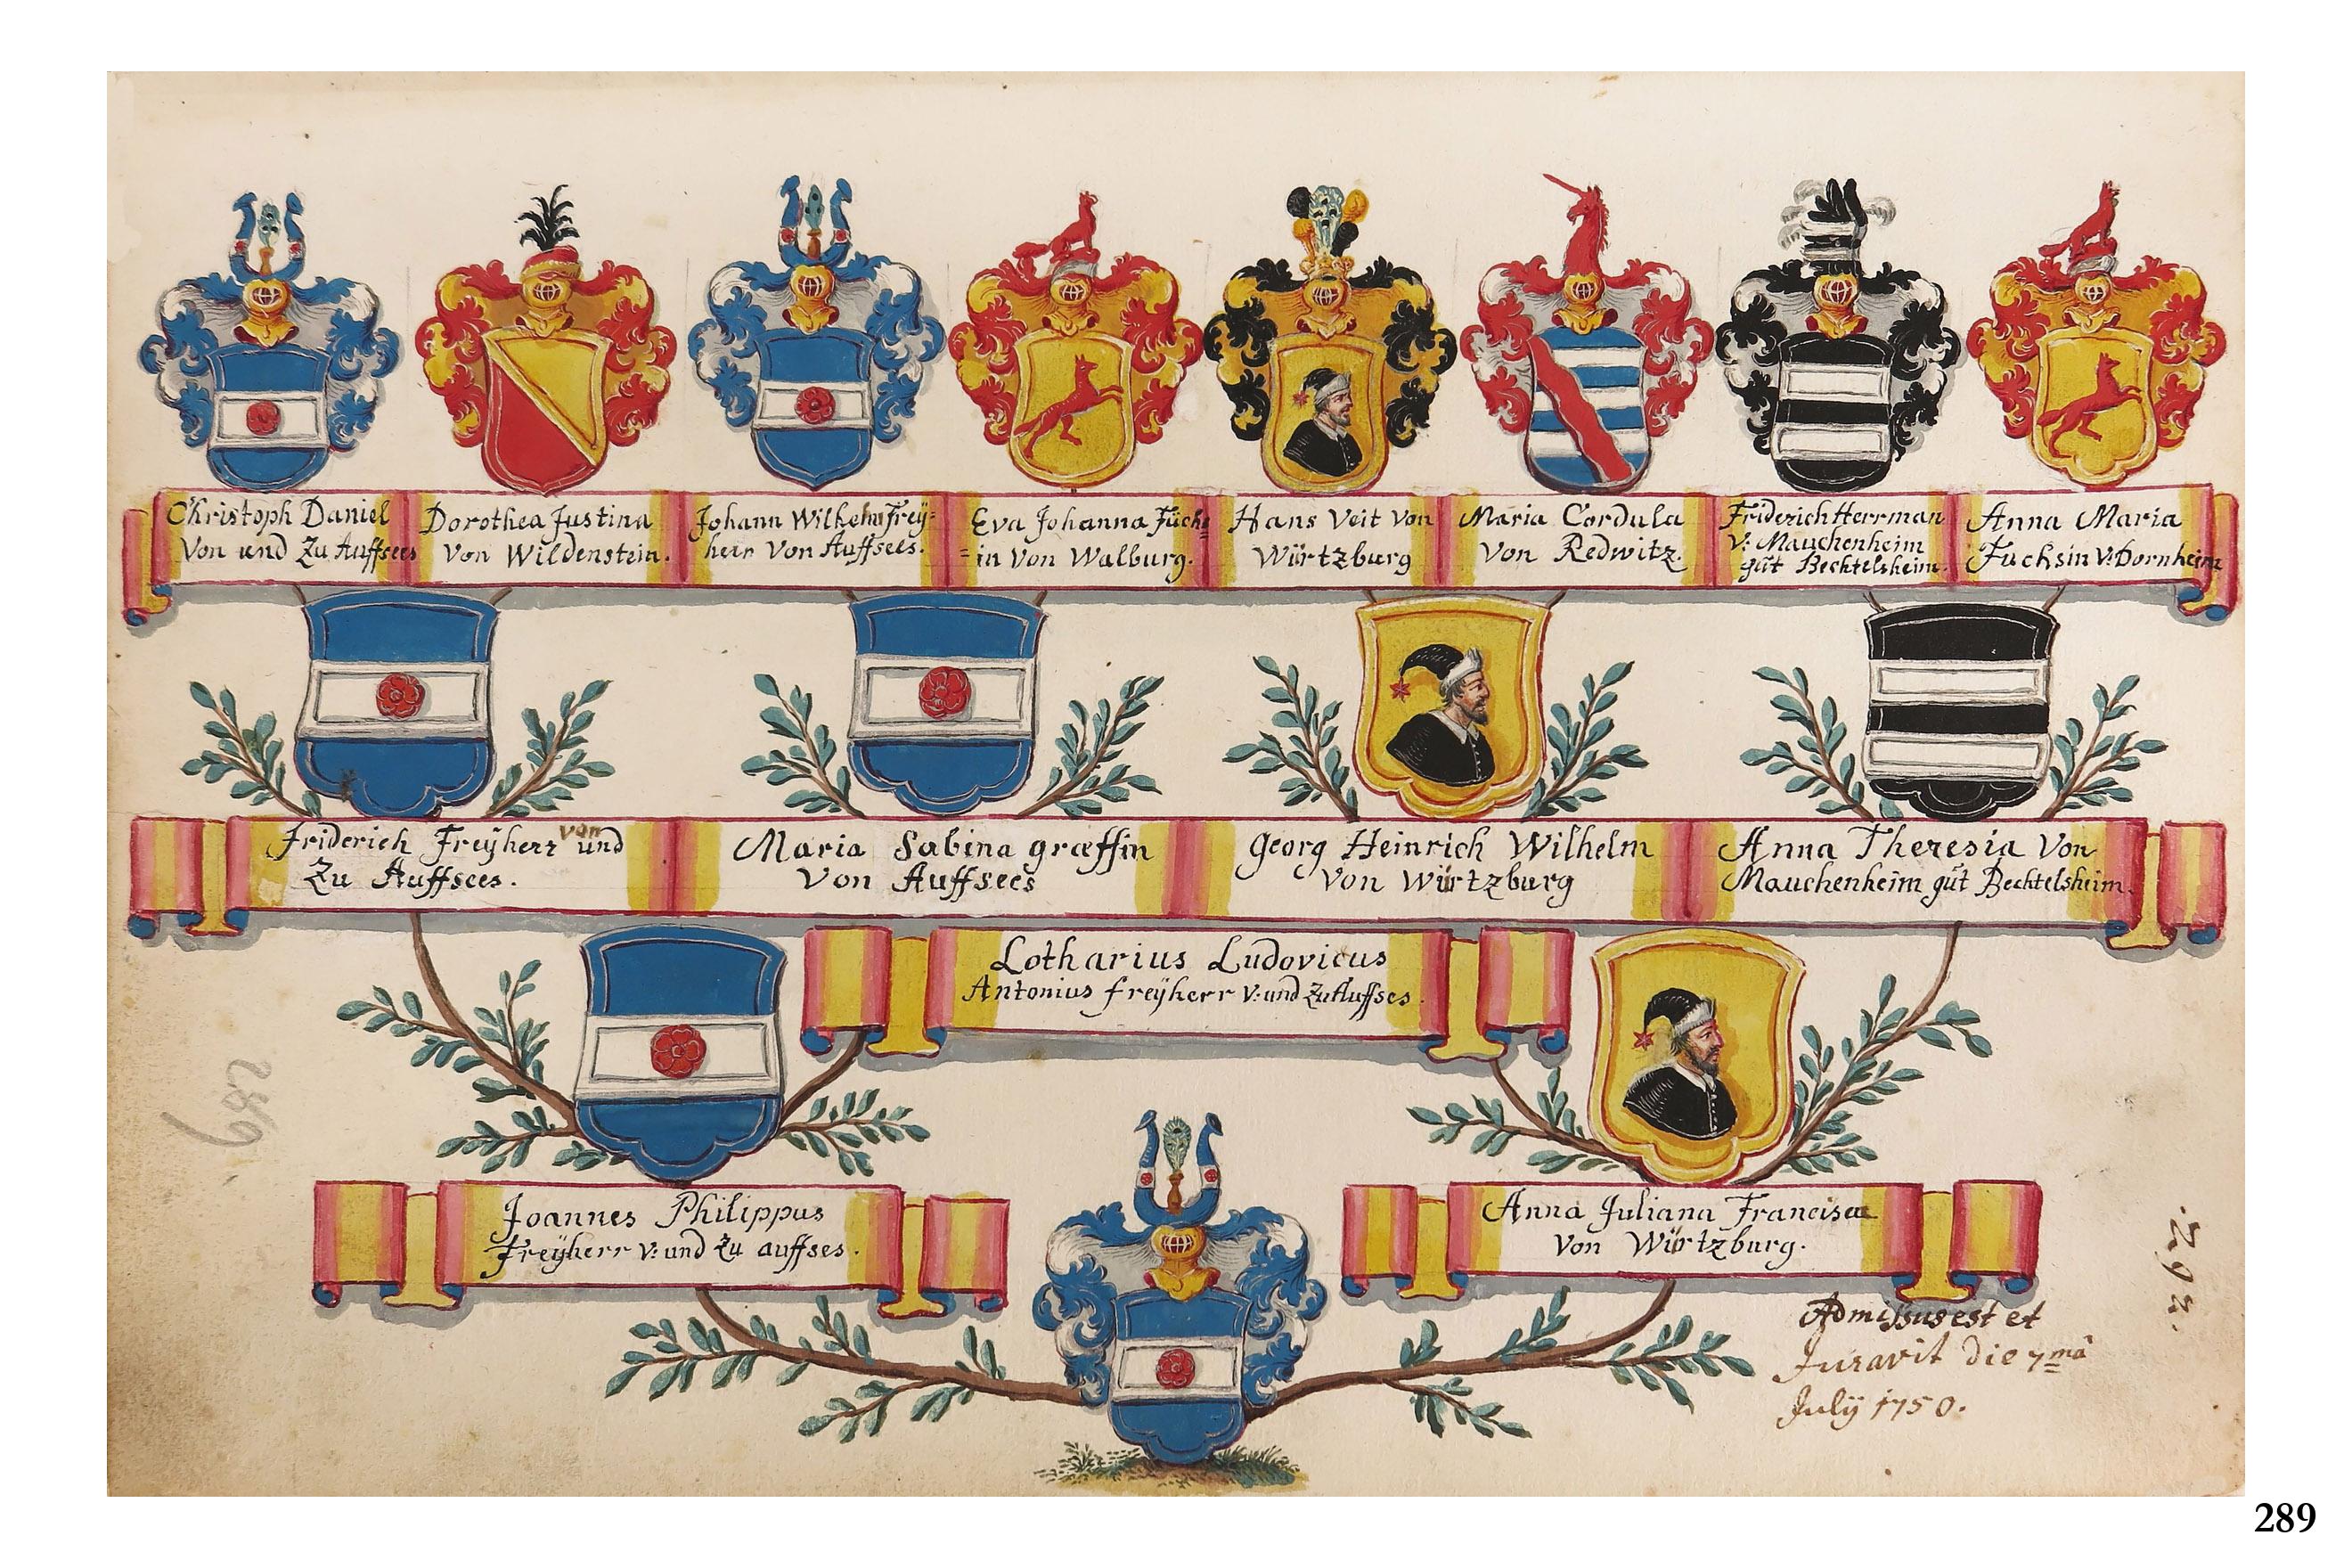 Christoph Daniel
Von und Zu Auffsees
Dorothea Justina
Von Wildenstein.
Johann Wilhelm Freÿ=
herr Von Auffsees.
Eva Johanna Füchs
=in Von Walburg.
Hans Veit Von
Würtzburg
Maria Cordula
Von Redwitz.
Friderich Herrman
V: Mauchenheim
güt Bechtelsheim.
Anna Maria
Fuchsin V: Dornheim
Friderich Freÿherr von und
Zu Auffsees.
Maria Sabina græffin
Von Auffsees
Georg Heinrich Wilhelm
Von Würtzburg
Anna Theresia Von
Mauchenheim güt Bechtelsheim.
Lotharius Ludovicus
Antonius freÿherr v: und Zu Auffses.
289
Joannes Philippus
Freÿherr v: und Zu auffses.
Anna Juliana Francisca
Von Würtzburg.
.292.
Admissus est et
Juravit die 7mâ
Julÿ 1750.
289